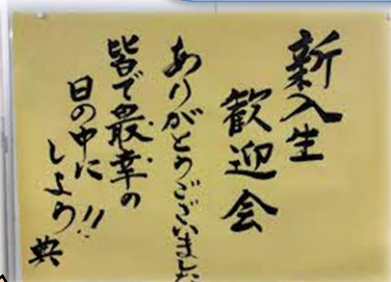 新入生
歓迎会
ありがとうございました
皆で最幸の
日の中に
しよう!!
典